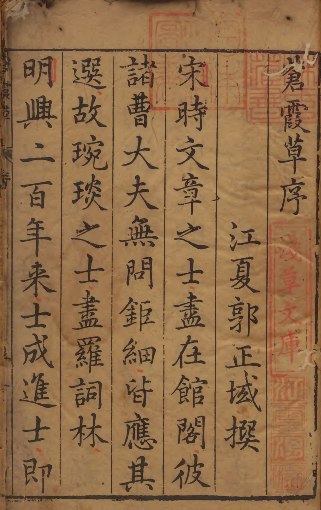 蒼霞草序
江夏郭正域撰
宋時文章之士盡在館閣彼
諸曹大夫無問鉅細皆應其
選故琬琰之士盡羅詞林
明興二百年来士成進士即